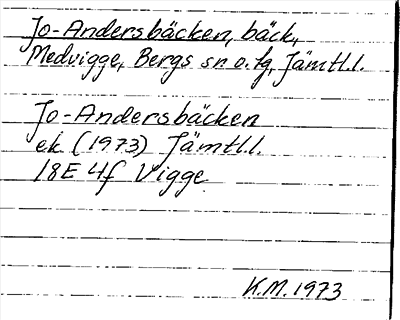 Jo-Andersbäcken, bäck,
Medvigge, Bergs sn o. tg, Jämtl.l.
Jo-Andersbäcken
ek (1973) Jämtl.l.
18E 4f Vigge
K.M. 1973